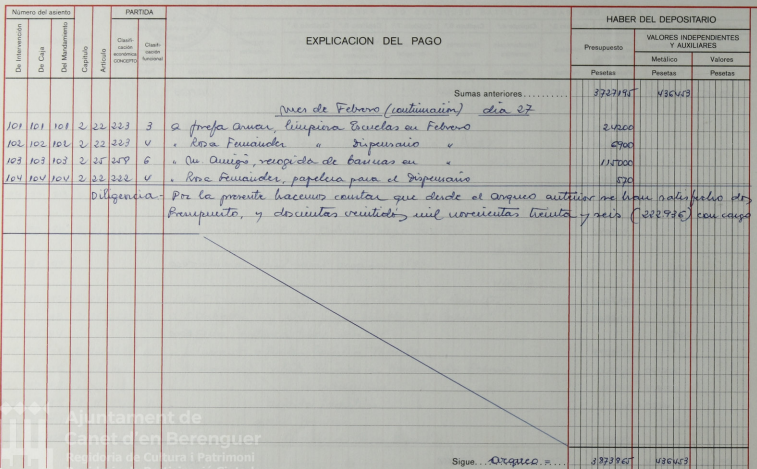 Número del asiento PARTIDA EXPLICACION DEL PAGO HABER DEL DEPOSITARIO
De Intervención De Caja Del Mandamiento Capítulo Artículo Clasificación económica CONCEPTO Clasificación funcional Presupuesto VALORES INDEPENDIENTES Y AUXILIARES
Metálico Valores
Pesetas Pesetas Pesetas
Sumas anteriores 3727195 436453
mes de Febrero (continuación) dia 27
101 101 101 2 22 223 3 a Josefa Arnar, limpieza Escuelas en Febrero 24200
102 102 102 2 22 223 4 " Rosa Fernández " Dispensario " 6900
103 103 103 2 25 259 6 " M. Amigó, recogida de basuras en " 115000
104 104 104 2 22 222 4 " Rosa Fernández, papelera para el Dispensario 570
Diligencia- Por la presente hacemos constar que desde el arqueo anterior se han satisfecho dos
Presupuesto, y doscientas veintidós mil novecientas treinta y seis (222936) con cargo
Ajuntament de
Canet d'en Berenguer
Regidoria de Cultura i Patrimoni
Sigue Arqueo = 3.873965 436453